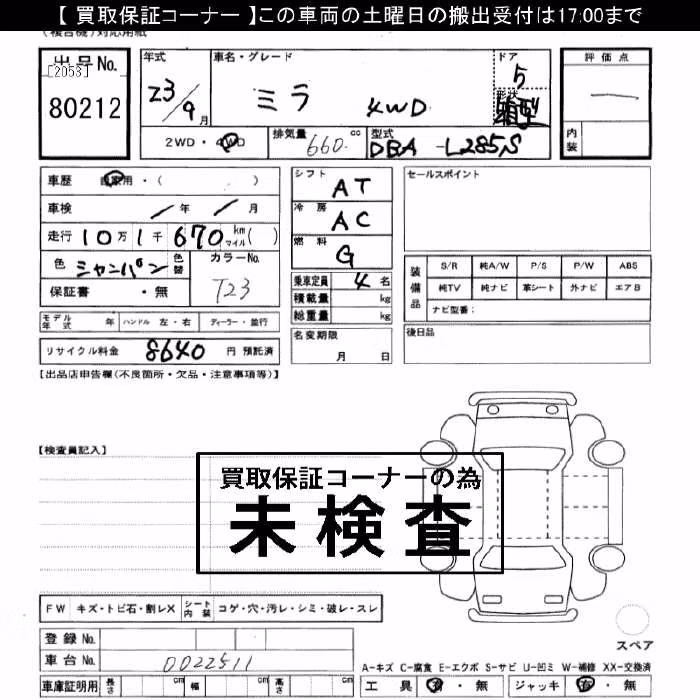 【 買取保証コーナー 】この車両の土曜日の搬出受付は17:00まで
(複合機)対応用紙
出品No.
[2053]
80212
年式
23/9月
車名・グレード
ミラ 4WD
ドア
5
形状
箱型
評価点
—
内装
2WD・4WD
排気量
660 cc
型式
DBA-L285S
車歴 自家用・( )
車検 / 年 / 月
走行 10万1千670 km マイル( )
色 シャンパン 色替
カラーNo.
T23
保証書 ・無
シフト AT
冷房 AC
燃料 G
乗車定員 4 名
積載量 kg
総重量 kg
セールスポイント
装備品
S/R 純A/W P/S P/W ABS
純TV 純ナビ 革シート 外ナビ エアB
ナビ型番:
モデル年式 年 ハンドル 左・右 ディーラー・並行
リサイクル料金 8640 円 預託済
名変期限
月 日
後日品
【出品店申告欄(不良箇所・欠品・注意事項等)】
【検査員記入】
買取保証コーナーの為
未検査
FW キズ・トビ石・割レX シート内装 コゲ・穴・汚レ・シミ・破レ・スレ
登録No.
車台No. 0022511
車庫証明用 長さ cm 幅 cm 高さ cm
スペア
A-キズ C-腐食 E-エクボ S-サビ U-凹ミ W-補修 XX-交換済
工具 有・無 ジャッキ 有・無